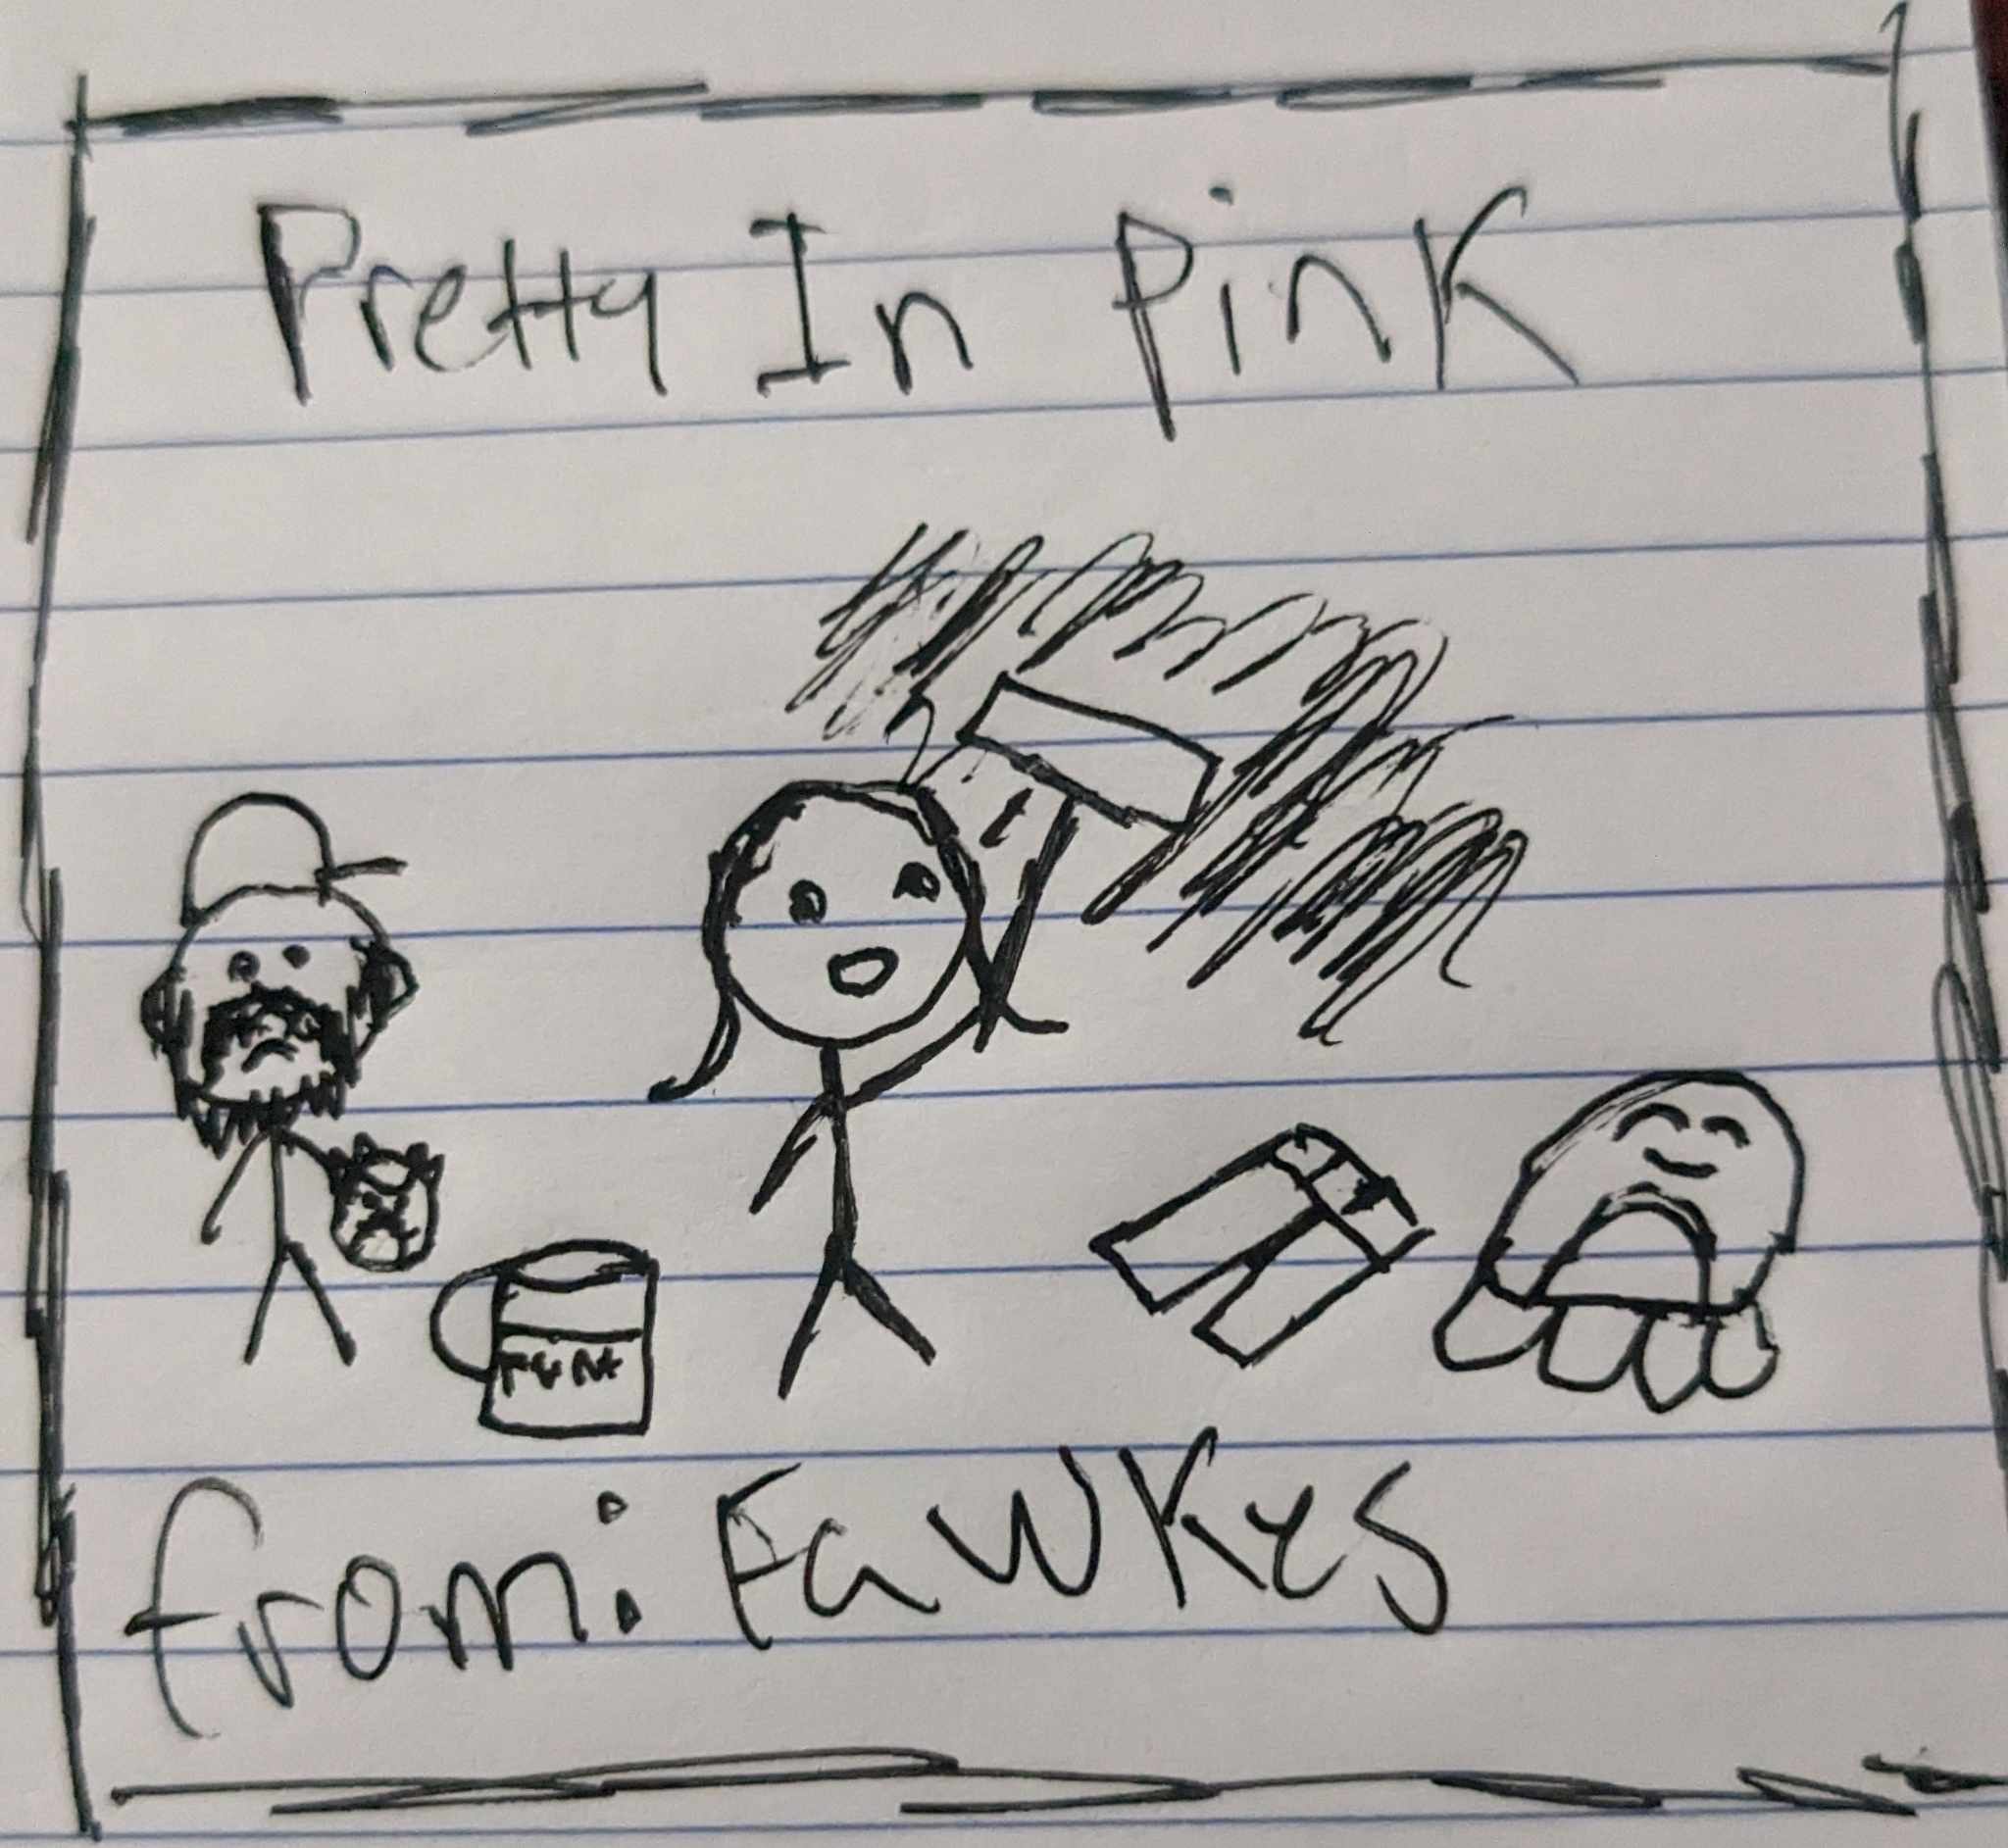 Pretty In Pink
from: Fawkes